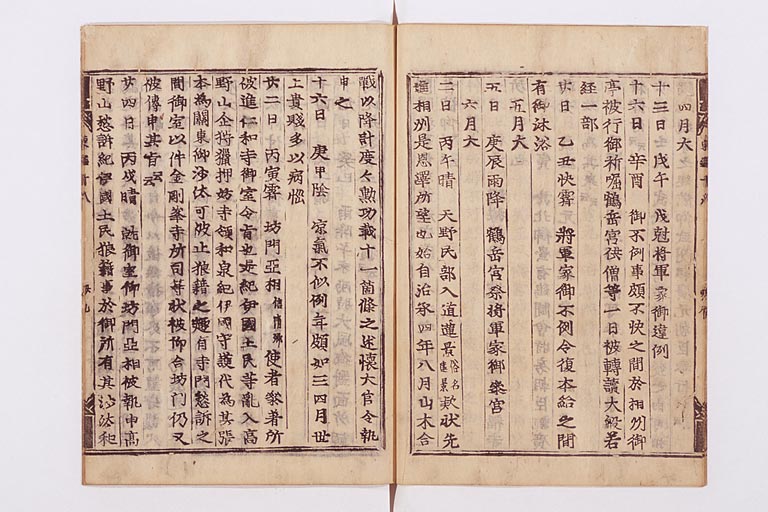 四月大
十三日 壬戌 午戌尅將軍家御違例
十六日 辛酉 御不例事頗不快之間於相州御
亭被行御祈禱鶴岳宮供僧等一日被轉讀大般若
經一部
廿日 乙丑 快霽 將軍家御不例令復本給之間
有御沐浴
五月大
五日 庚辰 雨降 鶴岳宮祭將軍家御參宮
六月大
二日 丙午 晴 天野民部入道蓮景俗名遠景款狀先
進相州是恩澤所望也始自治承四年八月山木合
戰以降計度々勲功載十一箇條之述懷大官令執
申之
十六日 庚申 陰 涼氣不似例年頗如三四月世
上貴賤多以病惱
廿二日 丙寅 霽 坊門亞相信清卿使者參着所
被進仁和寺御室令旨也是紀伊國土民等亂入高
野山企狩獵押妨寺領和泉紀伊國守護代爲其張
本爲關東御沙汰可被止狼藉之趣有寺門愁訴之
間御室以件金剛峯寺所司等狀被仰合坊門仍又
被傳申其旨云云
廿四日 丙戌 晴 就御室仰坊門亞相被執申高
野山愁訴紀伊國土民狼藉事於御所有其沙汰和